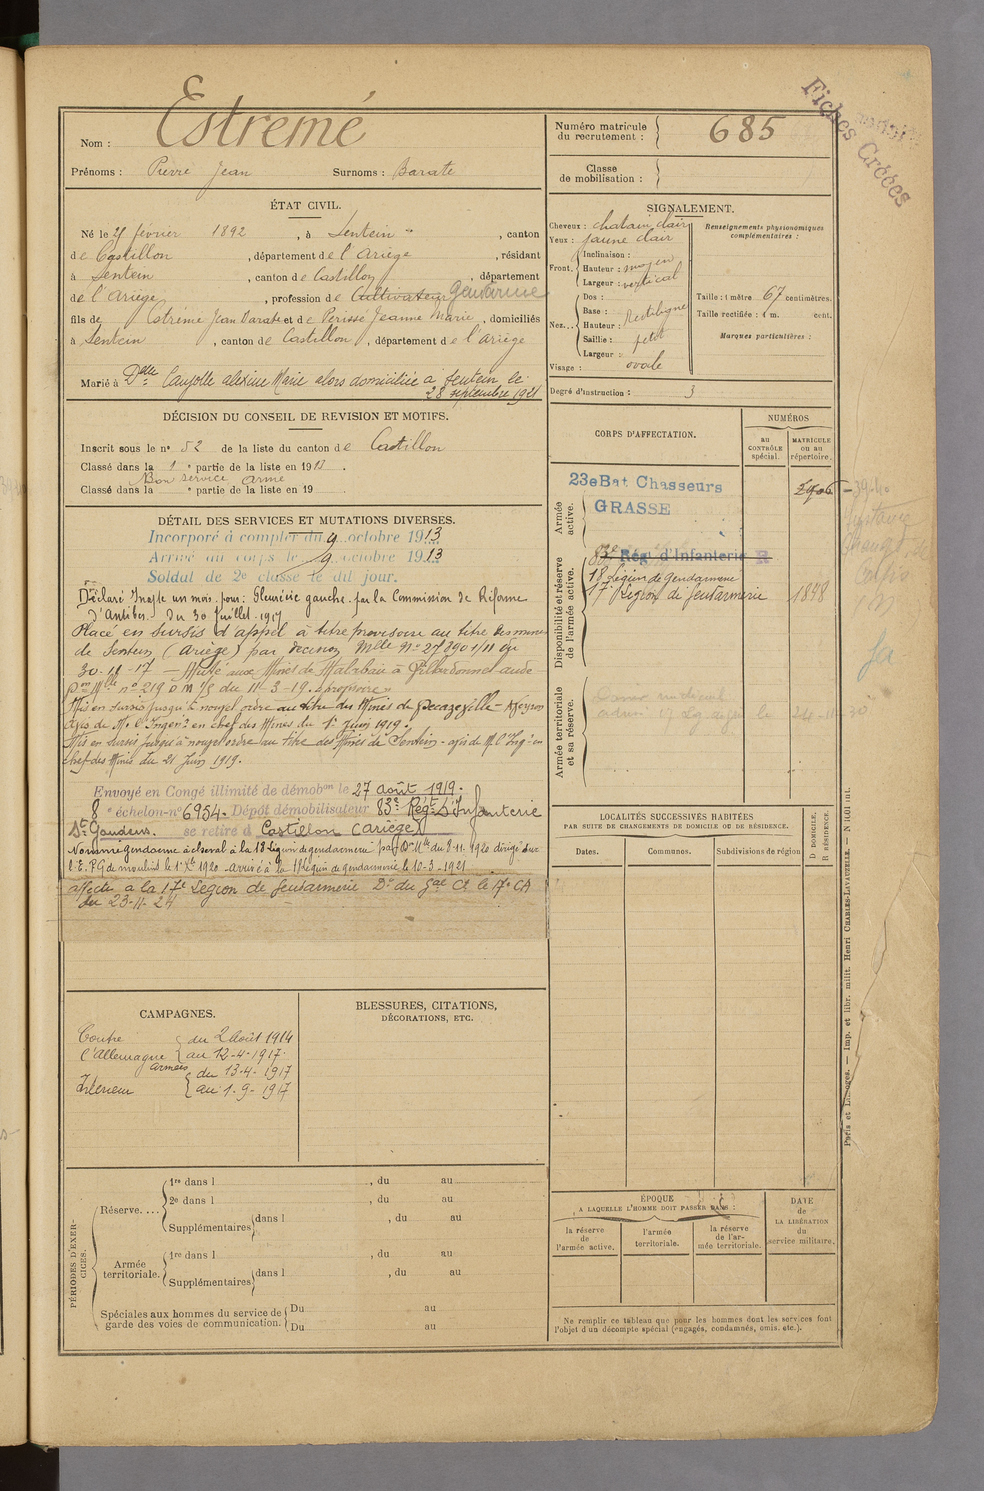 Fiches Créées
Nom : Estremé
Prénoms : Pierre Jean Surnoms : Barate
ÉTAT CIVIL.
Né le 27 février 1892, à Sentein, canton
de Castillon, département de l'Ariège, résidant
à Sentein, canton de Castillon, département
de l'Ariège, profession de Cultivateur Gendarme
fils de Estremé Jean Barate et de Perissé Jeanne Marie, domiciliés
à Sentein, canton de Castillon, département de l'Ariège
Marié à Delle Caujolle alexine Marie alors domiciliée à Sentein le
28 septembre 1921
DÉCISION DU CONSEIL DE REVISION ET MOTIFS.
Inscrit sous le n° 52 de la liste du canton de Castillon
Classé dans la 1e partie de la liste en 1913.
Bon service armé
Classé dans la e partie de la liste en 19
DÉTAIL DES SERVICES ET MUTATIONS DIVERSES.
Incorporé à compter du 9 octobre 1913
Arrivé au corps le 9 octobre 1913
Soldat de 2e classe le dit jour.
Déclaré Inapte un mois pour : Pleurésie gauche par la Commission de Réforme
d'Antibes du 30 Juillet 1917
Placé en sursis d'appel à titre provisoire au titre des mines
de Sentein (Ariège) par decision Mlle N° 27890 1/11 du
30-11-17 — Muté aux Mines de Malabau à Villardonnel aude
Don Mlle n° 219 D M 1/5 du 11-3-19.
Mis en sursis jusqu'à nouvel ordre au titre des Mines de Decazeville - Aveyron
Avis de Mr l'Ingenr en chef des Mines du 1er Juin 1919.
Mis en sursis jusqu'à nouvel ordre au titre des Mines de Sentein - avis de Mr l'Ingr en
chef des Mines du 21 Juin 1919.
Envoyé en Congé illimité de démobon le 27 août 1919.
8e échelon - n° 6954. Dépôt démobilisateur 83e Régt d'Infanterie
St Gaudens. se retire à Castillon (Ariège)
Nommé gendarme à cheval à la 18 Légion de gendarmerie par Don Mlle du 8-11-1920 dirigé sur
l'E.P.G de moulins le 1er Xbre 1920 - Arrivé à la 18 Légion de gendarmerie le 10-3-1921
affecté à la 17e Legion de Gendarmerie Don du Gal Ct le 17e CA
du 23-11-24
CAMPAGNES.
Contre
l'Allemagne
du 2 Août 1914
au 12-4-1917.
armées
Intérieur
du 13-4-1917
au 1-9-1917
BLESSURES, CITATIONS,
DÉCORATIONS, ETC.
PÉRIODES D'EXERCICES.
Réserve....
1re dans l , du au
2e dans l , du au
Supplémentaires dans l , du au
Armée
territoriale.
1re dans l , du au
Supplémentaires dans l , du au
Spéciales aux hommes du service de
garde des voies de communication.
Du au
Du au
Numéro matricule
du recrutement : 685
Classe
de mobilisation :
SIGNALEMENT.
Cheveux : chatain clair
Yeux : jaune clair
Front.
Inclinaison :
Hauteur : moyen
Largeur : vertical
Nez...
Dos :
Base : Rectiligne
Hauteur :
Saillie : petit
Largeur :
Visage : ovale
Renseignements physionomiques
complémentaires :
Taille : 1 mètre 67 centimètres.
Taille rectifiée : 1 m. cent.
Marques particulières :
Degré d'instruction : 3
CORPS D'AFFECTATION.
NUMÉROS
au
CONTRÔLE
spécial.
MATRICULE
ou au
répertoire.
Armée
active.
23e Bat Chasseurs
GRASSE
Disponibilité et réserve
de l'armée active.
83e Rég. d'Infanterie R
18 Légion de Gendarmerie
17e Légion de Gendarmerie 1848
Armée territoriale
et sa réserve.
LOCALITÉS SUCCESSIVES HABITÉES
PAR SUITE DE CHANGEMENTS DE DOMICILE OU DE RÉSIDENCE.
Dates.
Communes.
Subdivisions de région
D DOMICILE.
R RÉSIDENCE.
ÉPOQUE
A LAQUELLE L'HOMME DOIT PASSER DANS :
la réserve
de
l'armée active.
l'armée
territoriale.
la réserve
de l'armée territoriale.
DATE
de
LA LIBÉRATION
du
service militaire.
Ne remplir ce tableau que pour les hommes dont les services font
l'objet d'un décompte spécial (engagés, condamnés, omis, etc.).
Paris et Limoges. — Imp. et libr. milit. Henri CHARLES-LAVAUZELLE.